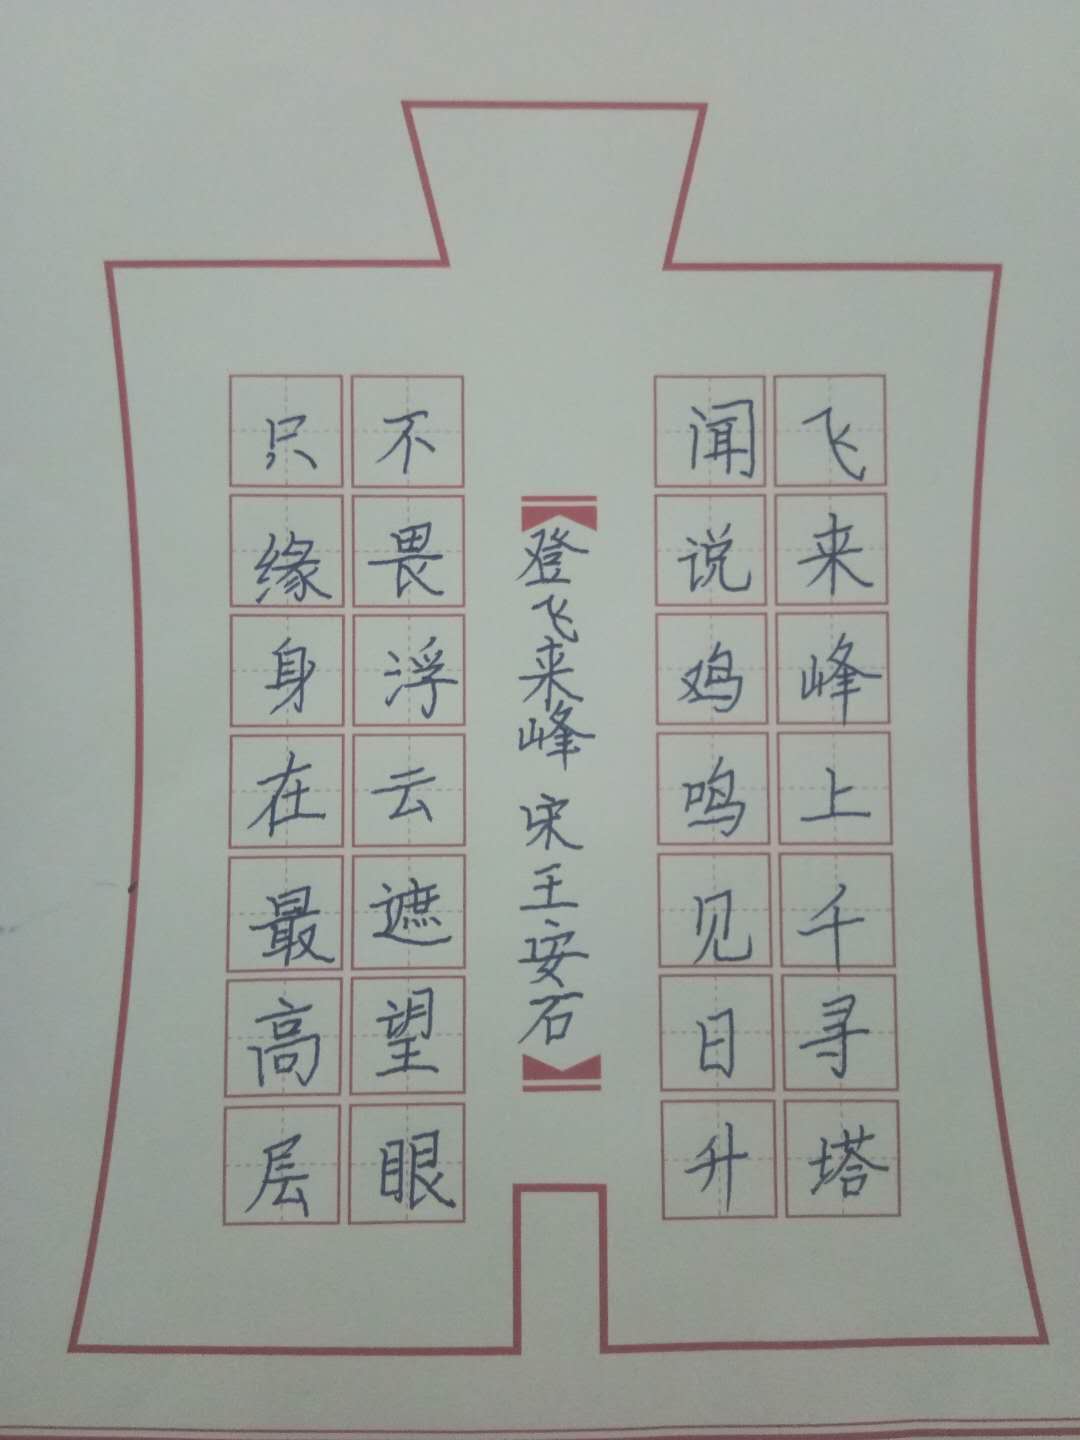 飞来峰上千寻塔
闻说鸡鸣见日升
登飞来峰 宋 王安石
不畏浮云遮望眼
只缘身在最高层